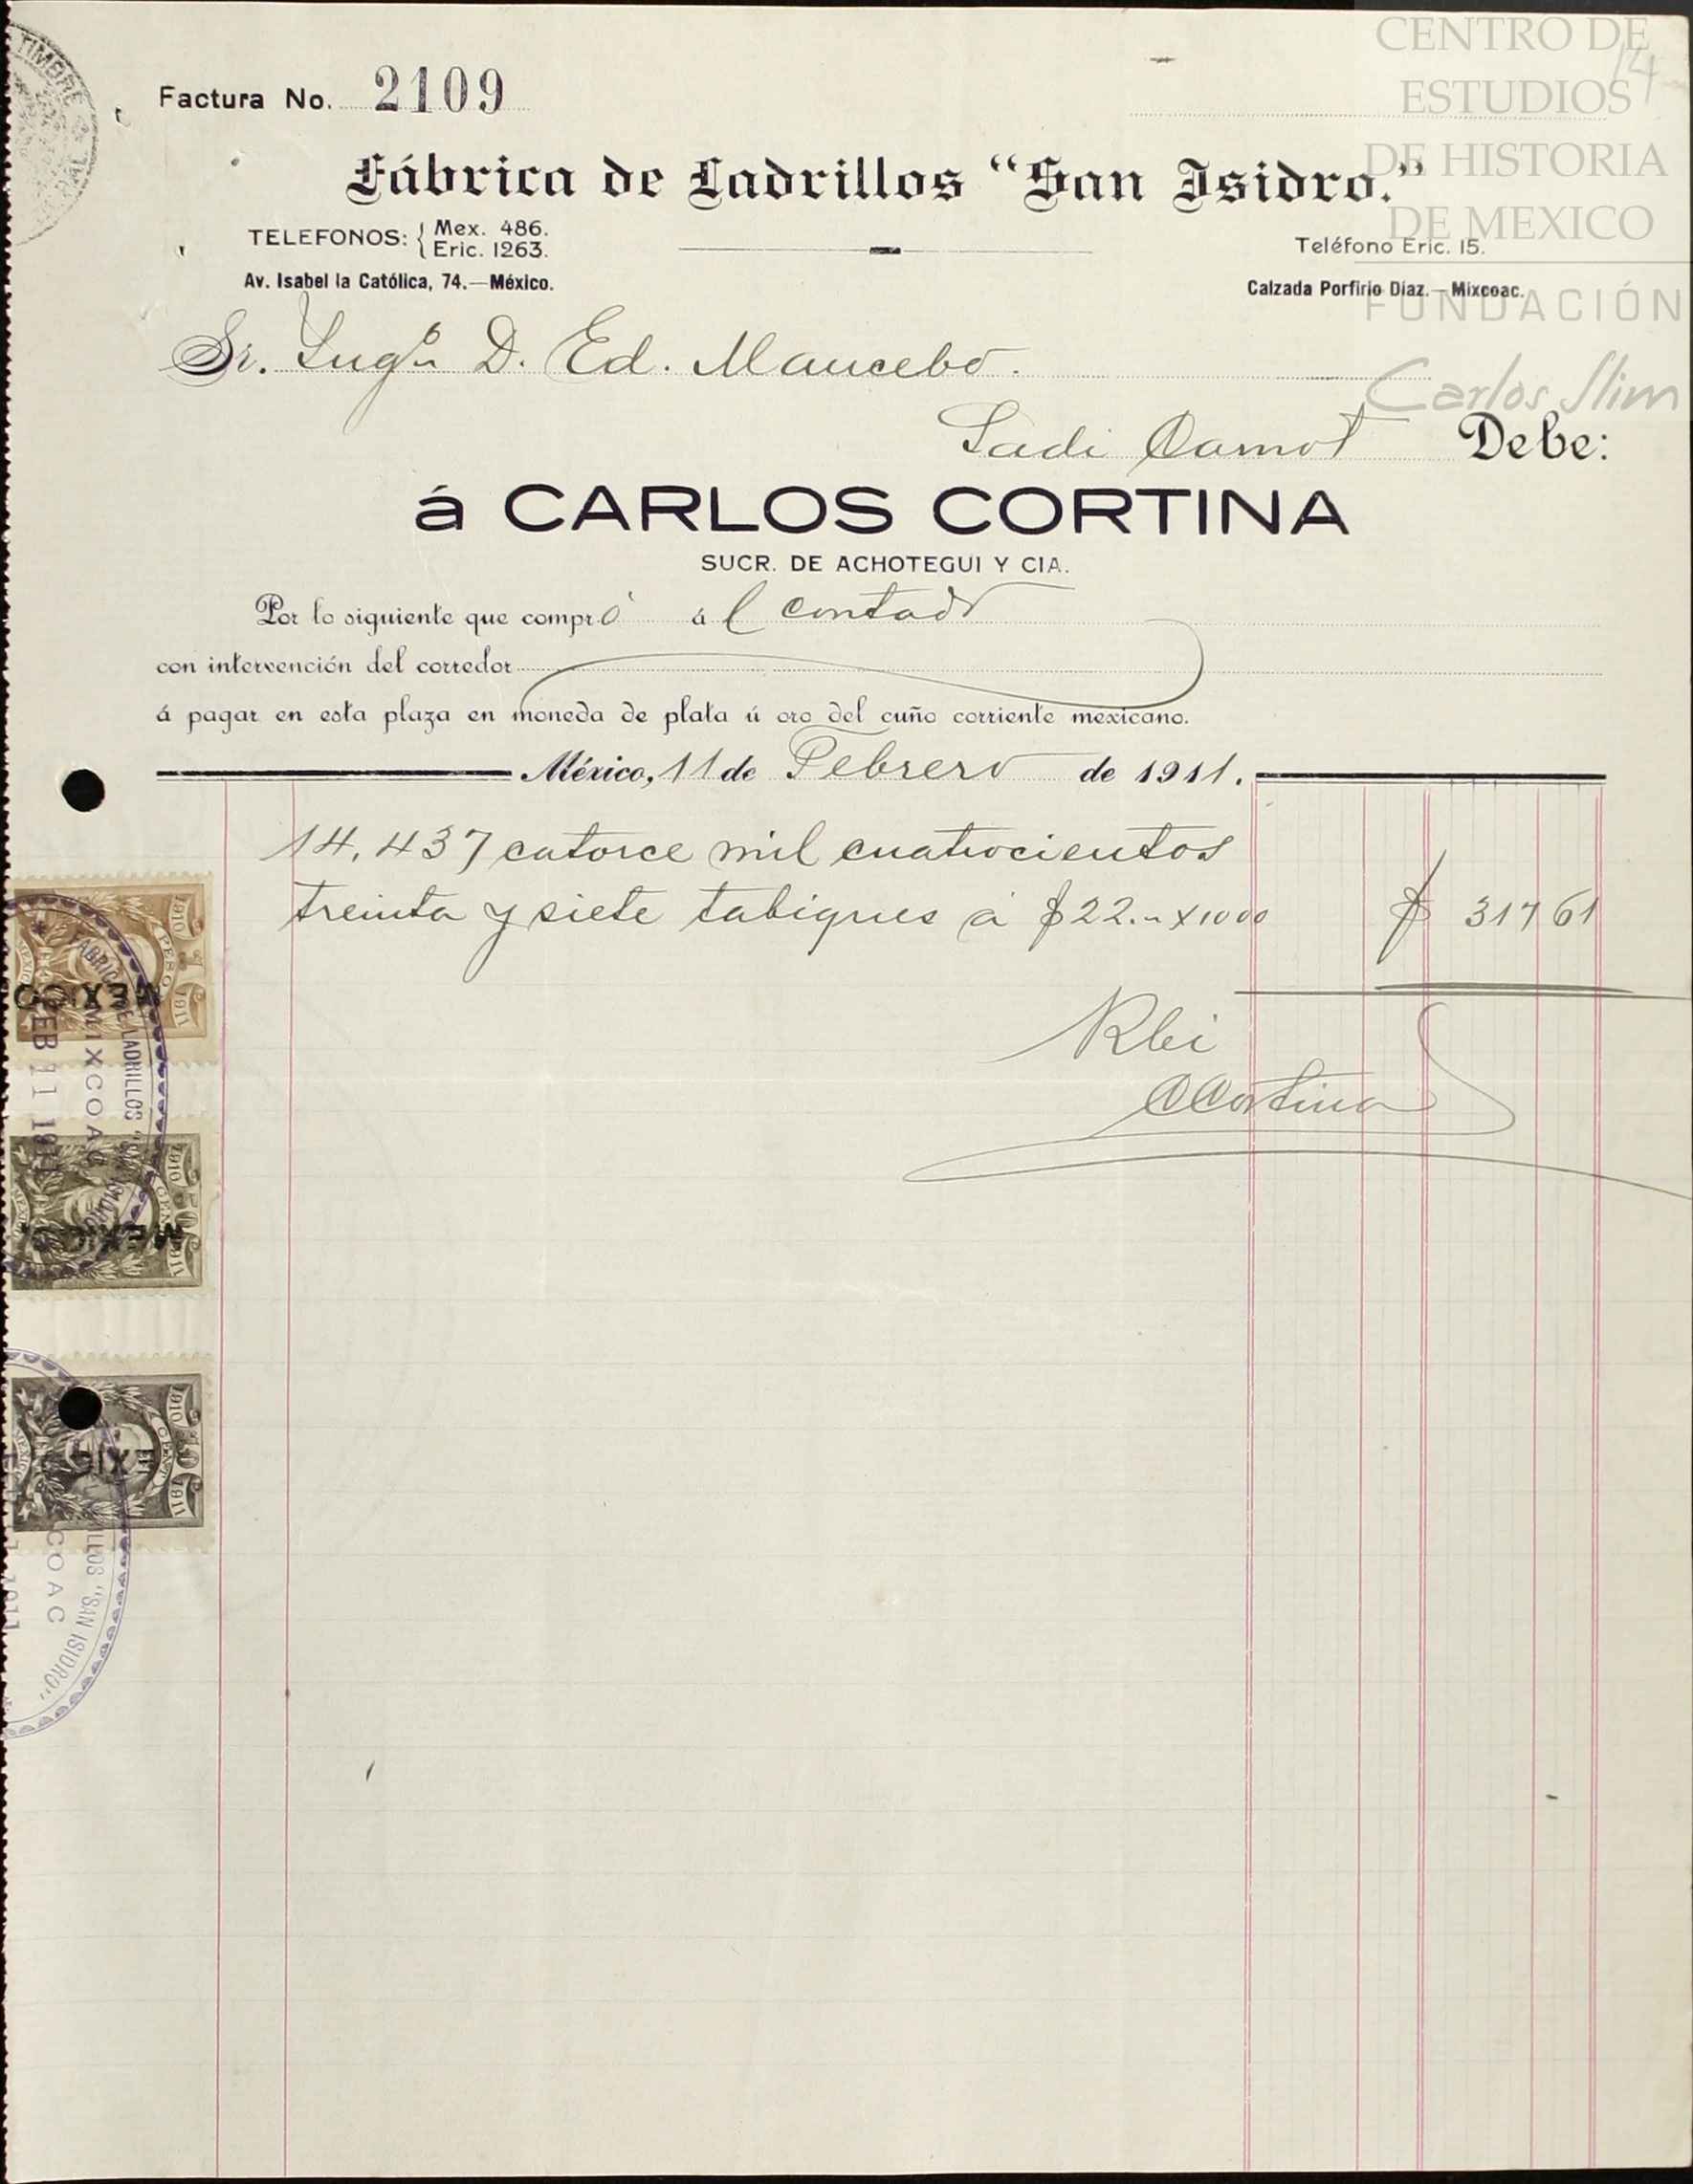 CENTRO DE
ESTUDIOS
DE HISTORIA
DE MEXICO
FUNDACIÓN
Carlos Slim
14
TIMBRE
Factura No. 2109
Fábrica de Ladrillos “San Isidro.”
TELEFONOS: { Mex. 486.
Eric. 1263.
Teléfono Eric. 15.
Av. Isabel la Católica, 74.—México.
Calzada Porfirio Diaz.—Mixcoac.
Sr. Ingo. D. Ed. Mancebo.
Sadi Carnot Debe:
á CARLOS CORTINA
SUCR. DE ACHOTEGUI Y CIA.
Por lo siguiente que compró ál contado
con intervención del corredor
á pagar en esta plaza en moneda de plata ú oro del cuño corriente mexicano.
México, 11 de Febrero de 1911.
14,437 catorce mil cuatrocientos
treinta y siete tabiques a $22.- x 1000 $ 317 61
Rbi
CCortina
1910 PESO 1911
MEXICO
FABRICA DE LADRILLOS "SAN ISIDRO"
MIXCOAC
FEB 11 1911
1910 50 CENT 1911
MEXICO
1910 CENT 1911
MIX
LADRILLOS "SAN ISIDRO"
COAC
1911